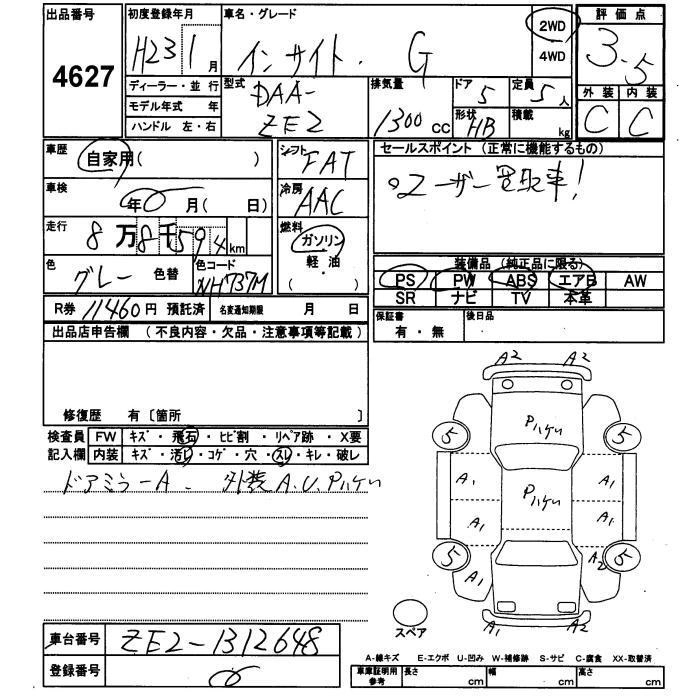 出品番号 初度登録年月 車名・グレード 2WD 評価点
4627 H23 1 月 インサイト. G 4WD 3.5
ディーラー・並行 型式 排気量 ドア 定員 外装 内装
モデル年式 年 DAA- 1300 cc 5 5人 C C
ハンドル 左・右 ZE2 形状 HB 積載 kg
車歴 自家用( ) シフト FAT セールスポイント (正常に機能するもの)
車検 年 月( 日) 冷房 AAC ユーザー買取車!
走行 8万8千594km 燃料 ガソリン
軽・油
( )
色 グレー 色替 色コード NH737M 装備品 (純正品に限る)
PS PW ABS エアB AW
SR ナビ TV 本革
R券 11460円 預託済 名変通知期限 月 日 保証書 有・無 後日品
出品店申告欄 (不良内容・欠品・注意事項等記載)
修復歴 有〔箇所 〕
検査員 FW キズ・飛石・ヒビ割・リペア跡・X要
記入欄 内装 キズ・汚レ・コゲ・穴・スレ・キレ・破レ
ドアミラーA. 外装A.U.Pハゲい
A2 A2
Pハゲい
5 5
A1 Pハゲい A1
A1 A1
5 A2 5
A1
A1 A2
スペア
車台番号 ZE2-1312648
登録番号
A-線キズ E-エクボ U-凹み W-補修跡 S-サビ C-腐食 XX-取替済
車庫証明用参考 長さ cm 幅 cm 高さ cm